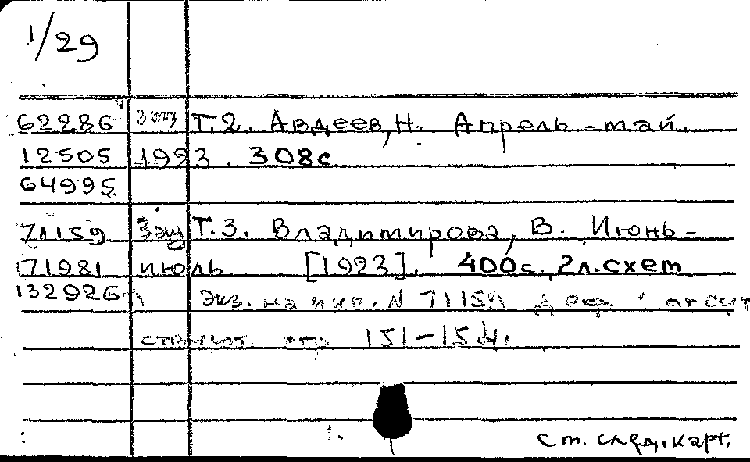 1/29
62286 3эц Т.2. Авдеев, Н. Апрель-май.
12505 1923. 308с
64995
71159 3эц Т.3. Владимирова, В. Июнь-
171981 июль [1923]. 400с. 2л.схем
132926 Экз. на инв. N 71159
стр. 151-154.
См. след. карт.